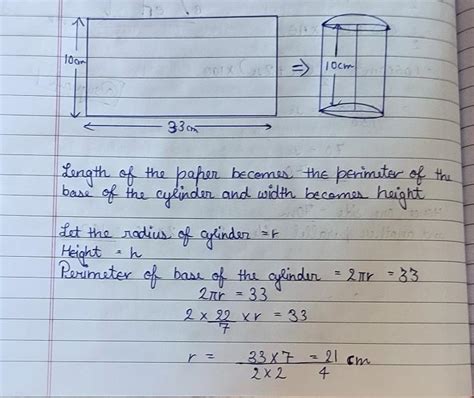 10cm
⇒
10cm
33cm
Length of the paper becomes the perimeter of the
base of the cylinder and width becomes height
Let the radius of cylinder = r
Height = h
Perimeter of base of the cylinder = 2πr = 33
2πr = 33
2 × 22/7 × r = 33
r = 33×7/2×2 = 21/4 cm